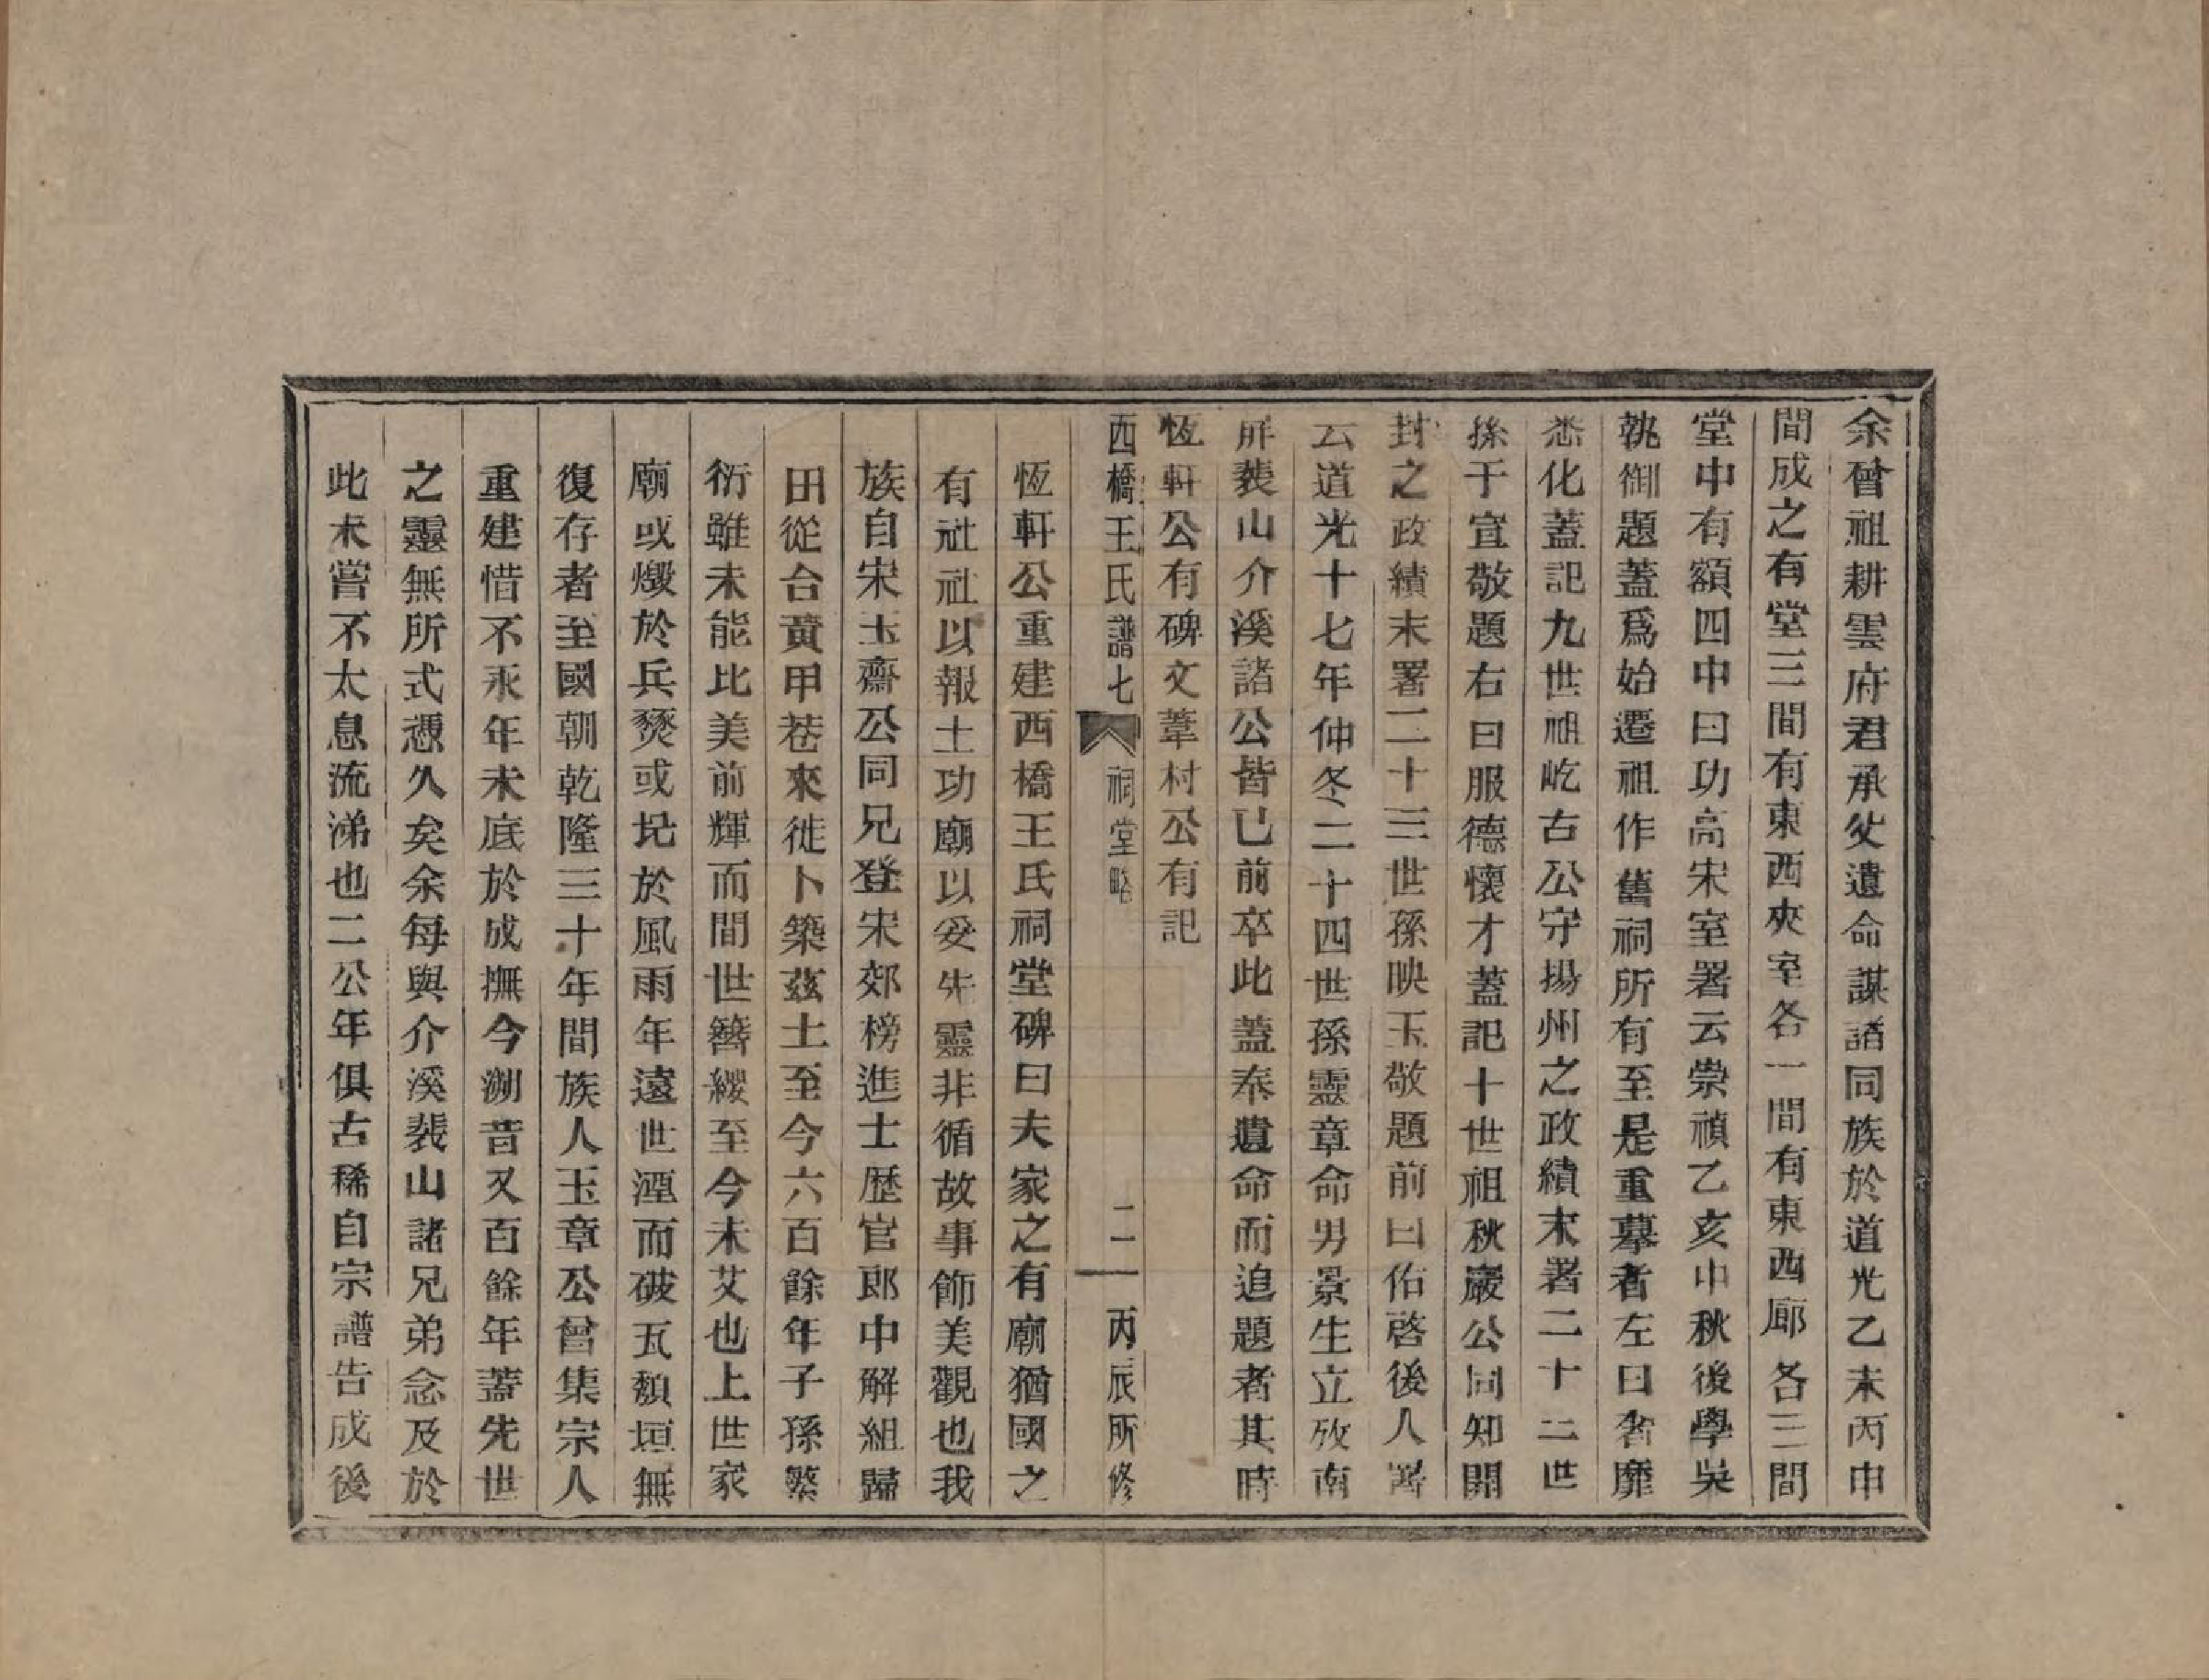 余曾祖耕雲府君承父遺命謀諸同族於道光乙未丙申
間成之有堂三間有東西夾室各一間有東西廊各三間
堂中有額四中曰功高宋室署云崇禎乙亥中秋後學吳
執御題蓋爲始遷祖作舊祠所有至是重摹者左曰耆靡
悉化蓋記九世祖屹古公守揚州之政績末署二十二世
孫于宣敬題右曰服德懷才蓋記十世祖秋巖公同知開
封之政績末署二十三世孫映玉敬題前曰佑啓後人署
云道光十七年仲冬二十四世孫靈章命男景生立攷南
屛裴山介溪諸公皆已前卒此蓋奉遺命而追題者其時
恆軒公有碑文葦村公有記
西橋王氏譜七 祠堂略 二 丙辰所修
恆軒公重建西橋王氏祠堂碑曰夫家之有廟猶國之
有社社以報土功廟以妥先靈非循故事飾美觀也我
族自宋玉齋公同兄登宋郊榜進士歷官郎中解組歸
田從台黃甲巷來徙卜築茲土至今六百餘年子孫繁
衍雖未能比美前輝而間世簪纓至今未艾也上世家
廟或燬於兵燹或圯於風雨年遠世湮而破瓦頹垣無
復存者至國朝乾隆三十年間族人玉章公曾集宗人
重建惜不永年未底於成撫今溯昔又百餘年蓋先世
之靈無所式憑久矣余每與介溪裴山諸兄弟念及於
此未嘗不太息流涕也二公年俱古稀自宗譜告成後